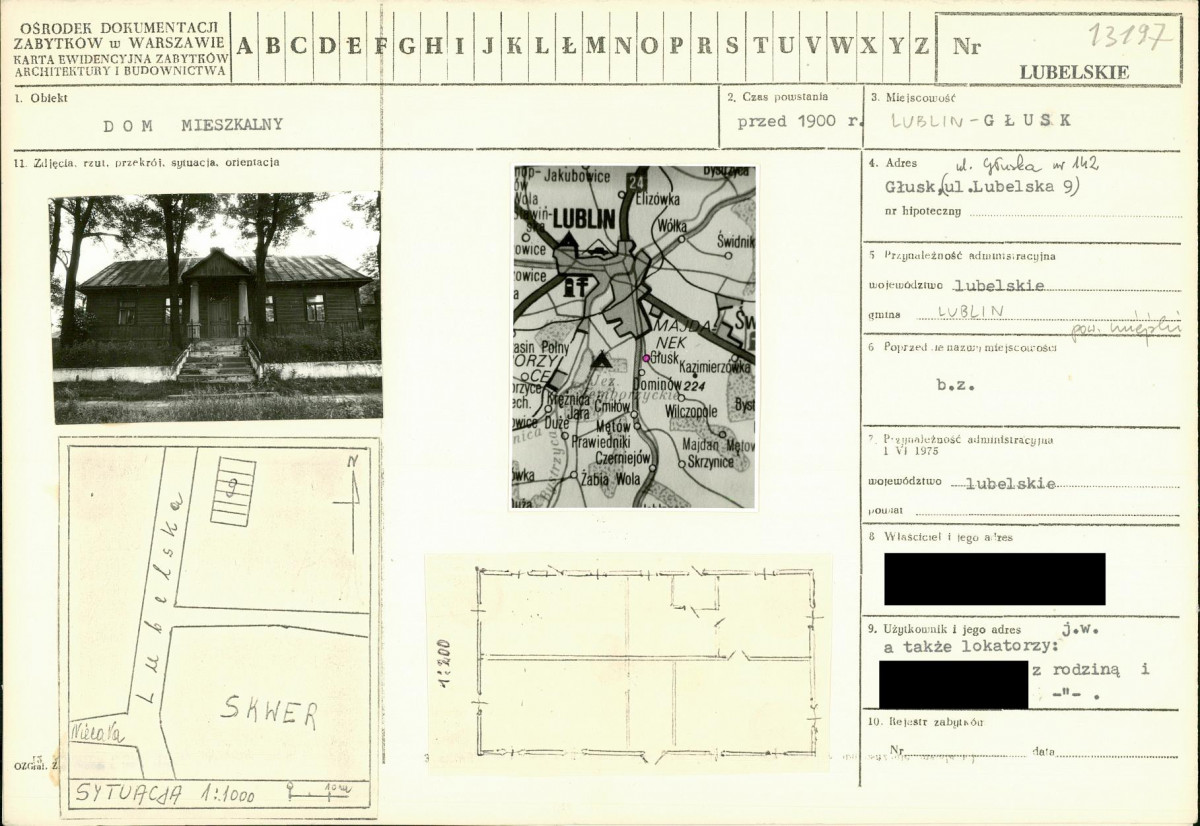 OŚRODEK DOKUMENTACJI
ZABYTKÓW w WARSZAWIE
KARTA EWIDENCYJNA ZABYTKÓW
ARCHITEKTURY I BUDOWNICTWA
A B C D E F G H I J K L Ł M N O P R S T U V W X Y Z
Nr 13197
LUBELSKIE
1. Obiekt
DOM MIESZKALNY
2. Czas powstania
przed 1900 r.
3. Miejscowość
LUBLIN-GŁUSK
11. Zdjęcia, rzut, przekrój, sytuacja, orientacja
4. Adres ul. Głuska nr 142
Głusk,(ul.Lubelska 9)
nr hipoteczny
5 Przynależność administracyjna
województwo lubelskie
gmina LUBLIN
pow. miejski
6 Poprzednie nazwy miejscowości
b.z.
7. Przynależność administracyjna
1 VI 1975
województwo lubelskie
powiat
8 Właściciel i jego adres
9. Użytkownik i jego adres j.w.
a także lokatorzy:
z rodziną i
-"- .
10. Rejestr zabytków
Nr data
Jakubowice
Bystrzyca
24
Elizówka
LUBLIN
Wólka
Świdnik
owice
owice
MAJDA-
NEK
Głusk
Kazimierzówka
asin Polny
ORZY
CE
Jez.
Zemborzyckie
Dominów 224
Krężnica
Jara
Ćmiłów
Wilczopole
Byst
Duże
Mętów
Prawiedniki
Majdan Mętow
Czerniejów
Skrzynice
Bystrzyca
Żabia Wola
N
8
Lubelska
SKWER
Niecała
SYTUACJA 1:1000
0 10m
1:200
OZGraf. Z